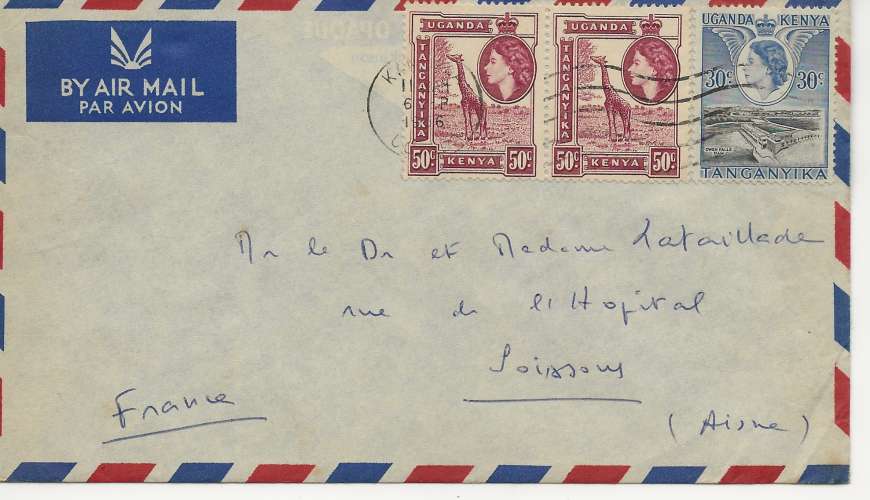 BY AIR MAIL
PAR AVION
UGANDA
TANGANYIKA
50c
KENYA
50c
UGANDA
TANGANYIKA
50c
KENYA
50c
UGANDA KENYA
30c 30c
OWEN FALLS
DAM
TANGANYIKA
Mr le Dr et Madame Lataillade
rue de l'Hopital
Soissons
(Aisne)
France